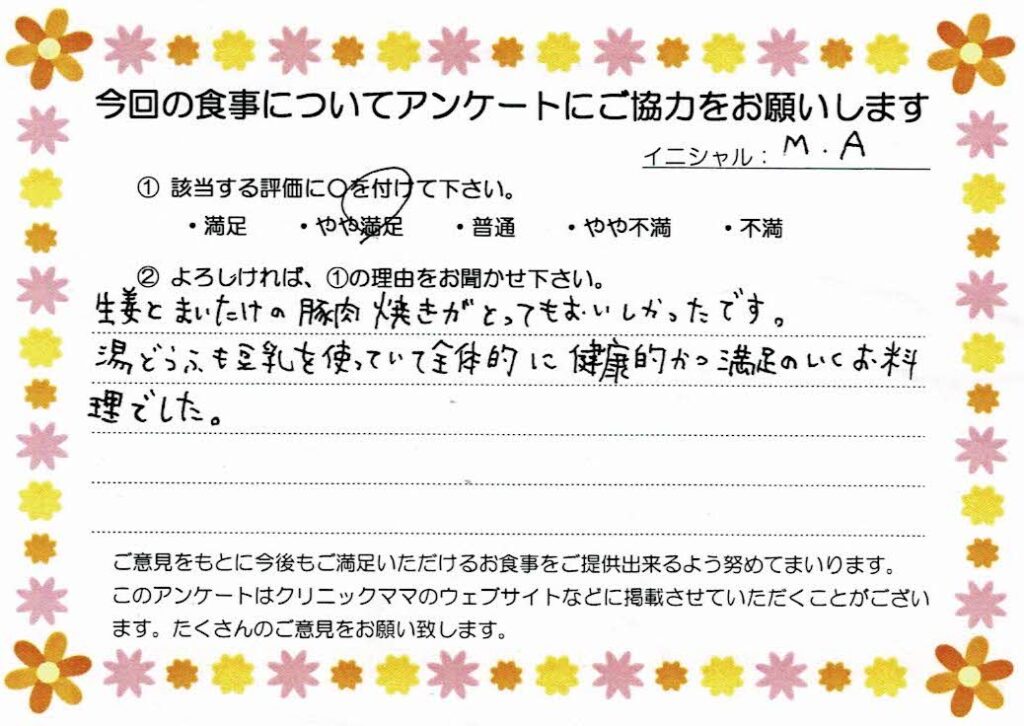 今回の食事についてアンケートにご協力をお願いします
イニシャル： M．A
① 該当する評価に○を付けて下さい。
・満足 ・やや満足 ・普通 ・やや不満 ・不満
② よろしければ、①の理由をお聞かせ下さい。
生姜とまいたけの豚肉焼きがとってもおいしかったです。
湯どうふも豆乳を使っていて全体的に健康的かつ満足のいくお料
理でした。
ご意見をもとに今後もご満足いただけるお食事をご提供出来るよう努めてまいります。
このアンケートはクリニックママのウェブサイトなどに掲載させていただくことがござい
ます。たくさんのご意見をお願い致します。